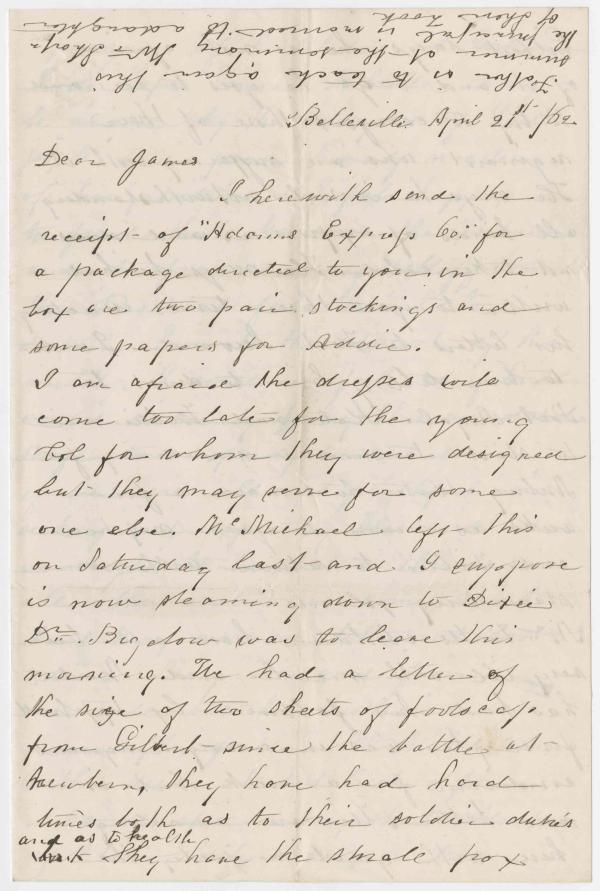 Father is to teach again this
summer at the seminary Mr Tharp
the principal is married to a daughter
of Thors Cook
Belleville April 21st /62
Dear James
I herewith send the
receipt of "Adams Express Co" for
a package directed to you in the
box are two pair stockings and
some papers for Addie.
I am afraid the dresses will
come too late for the young
Col for whom they were designed
but they may serve for some
one else. McMichael left this
on Saturday last and I suppose
is now steaming down to Dixie
Dr. Bigelow was to leave this
morning. We had a letter of
the size of two sheets of foolscap
from Gilbert since the battle at
Newbern, they have had hard
times both as to their soldier duties
and as to health
but they have the small pox